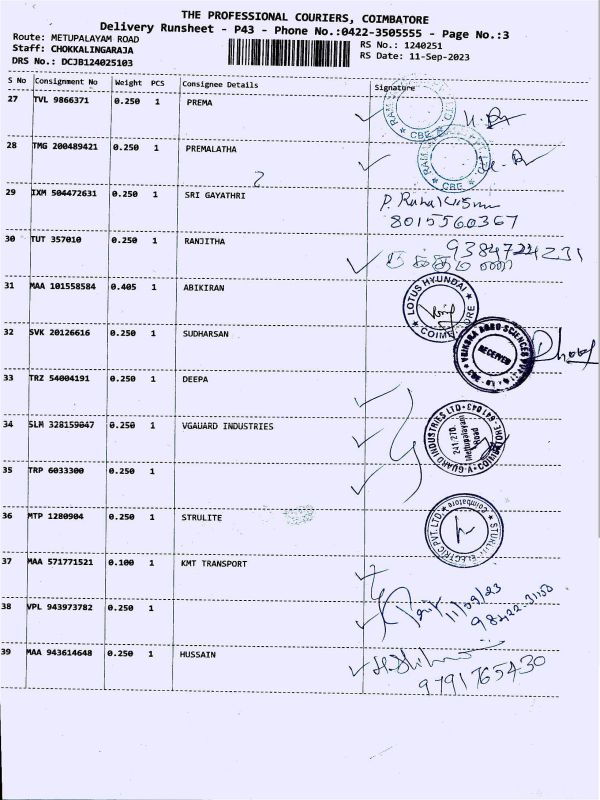 THE PROFESSIONAL COURIERS, COIMBATORE
Delivery Runsheet - P43 - Phone No.:0422-3505555 - Page No.:3
Route: METUPALAYAM ROAD
RS No.: 1240251
Staff: CHOKKALINGARAJA
RS Date: 11-Sep-2023
DRS No.: DCJB124025103
S No Consignment No Weight PCS Consignee Details Signature
27 TVL 9866371 0.250 1 PREMA
28 TMG 200489421 0.250 1 PREMALATHA
29 IXM 504472631 0.250 1 SRI GAYATHRI
8015560367
30 TUT 357010 0.250 1 RANJITHA
9384724231
31 MAA 101558584 0.405 1 ABIKIRAN
LOTUS HYUNDAI
COIMBATORE
32 SVK 20126616 0.250 1 SUDHARSAN
RECEIVED
33 TRZ 54004191 0.250 1 DEEPA
34 SLM 328159047 0.250 1 VGAUARD INDUSTRIES
V-GUARD INDUSTRIES LTD
241/270,
Mettupalayam
Road
35 TRP 6033300 0.250 1
36 MTP 1280904 0.250 1 STRULITE
ELECTRIC PVT. LTD.
Coimbatore
37 MAA 571771521 0.100 1 KMT TRANSPORT
11/09/23
38 VPL 943973782 0.250 1
39 MAA 943614648 0.250 1 HUSSAIN
9791765430